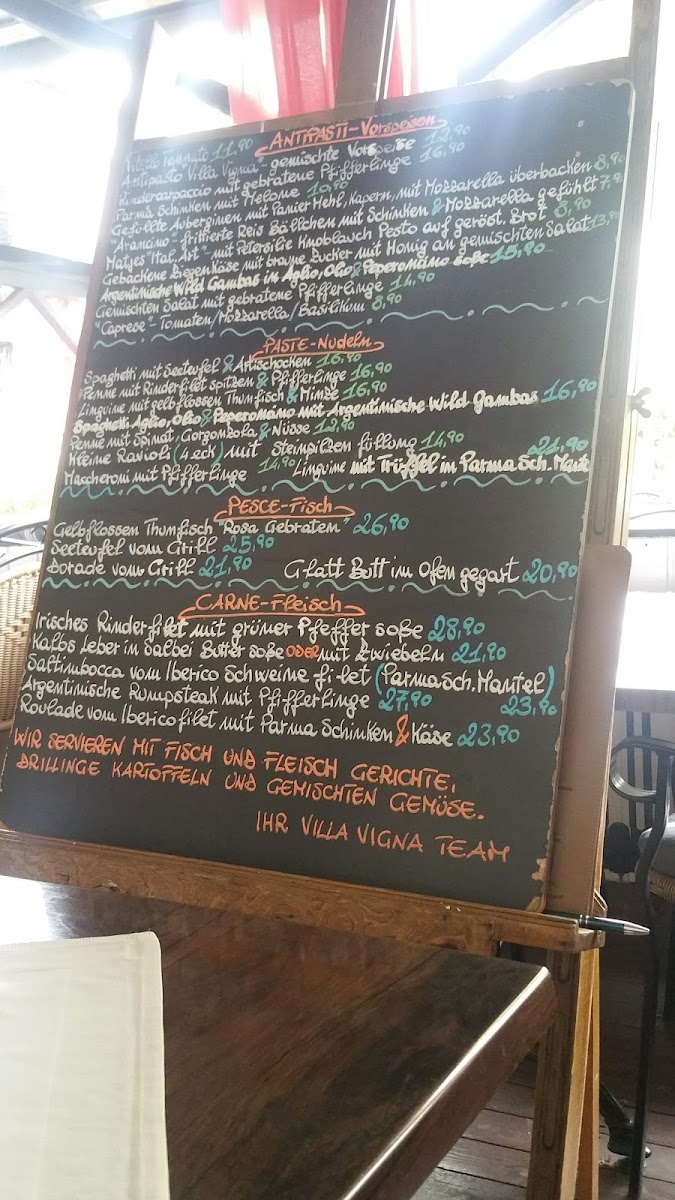 ANTIPASTI-Vorspeisen
Vitello Tonnato 11,90
Antipasto Villa Vigna - gemischte Vorspeise 12,90
Rindercarpaccio mit gebratene Pfifferlinge 16,90
Parma Schinken mit Melone 10,90
Gefüllte Auberginen mit Panier Mehl, Kapern, mit Mozzarella überbacken 8,90
"Arancino"- frittierte Reis Bällchen mit Schinken & Mozzarella gefühlt 7,90
Matjes "Hal. Art" mit Petersilie Knoblauch Pesto auf geröst. Brot 8,90
Gebackene Ziegenkäse mit braune Zucker mit Honig an gemischten Salat 13,90
Argentinische Wild Gambas in Aglio, Olio & Peperoncino Soße 15,90
Gemischten Salat mit gebratene Pfifferlinge 14,90
"Caprese" - Tomaten/Mozzarella/Basilikum 8,90
PASTE-Nudeln
Spaghetti mit Seeteufel & Artischocken 16,90
Penne mit Rinderfilet spitzen & Pfifferlinge 16,90
Linguine mit gelbflossen Thunfisch & Minze 16,90
Spaghetti Aglio, Olio & Peperoncino mit Argentinische Wild Gambas 16,90
Penne mit Spinat, Gorgonzola & Nüsse 12,90
Kleine Ravioli (4.eck) mit Steinpilzen füllung 14,90
Maccheroni mit Pfifferlinge 14,90 Linguine mit Trüffel in Parma Sch. Mantel 21,90
PESCE-Fisch
Gelbflossen Thunfisch "Rosa Gebraten" 26,90
Seeteufel vom Grill 25,90
Dorade vom Grill 21,90 Glatt Butt im Ofen gegart 20,90
CARNE-Fleisch
Irisches Rinderfilet mit grüner Pfeffer soße 28,90
Kalbs Leber in Salbei Butter soße ODER mit Zwiebeln 21,90
Saltimbocca vom Iberico Schweine filet (Parma Sch. Mantel) 23,90
Argentinische Rumpsteak mit Pfifferlinge 27,90
Roulade vom Iberico filet mit Parma Schinken & Käse 23,90
WIR SERVIEREN MIT FISCH UND FLEISCH GERICHTE,
DRILLINGE KARTOFFELN UND GEMISCHTEN GEMÜSE.
IHR VILLA VIGNA TEAM